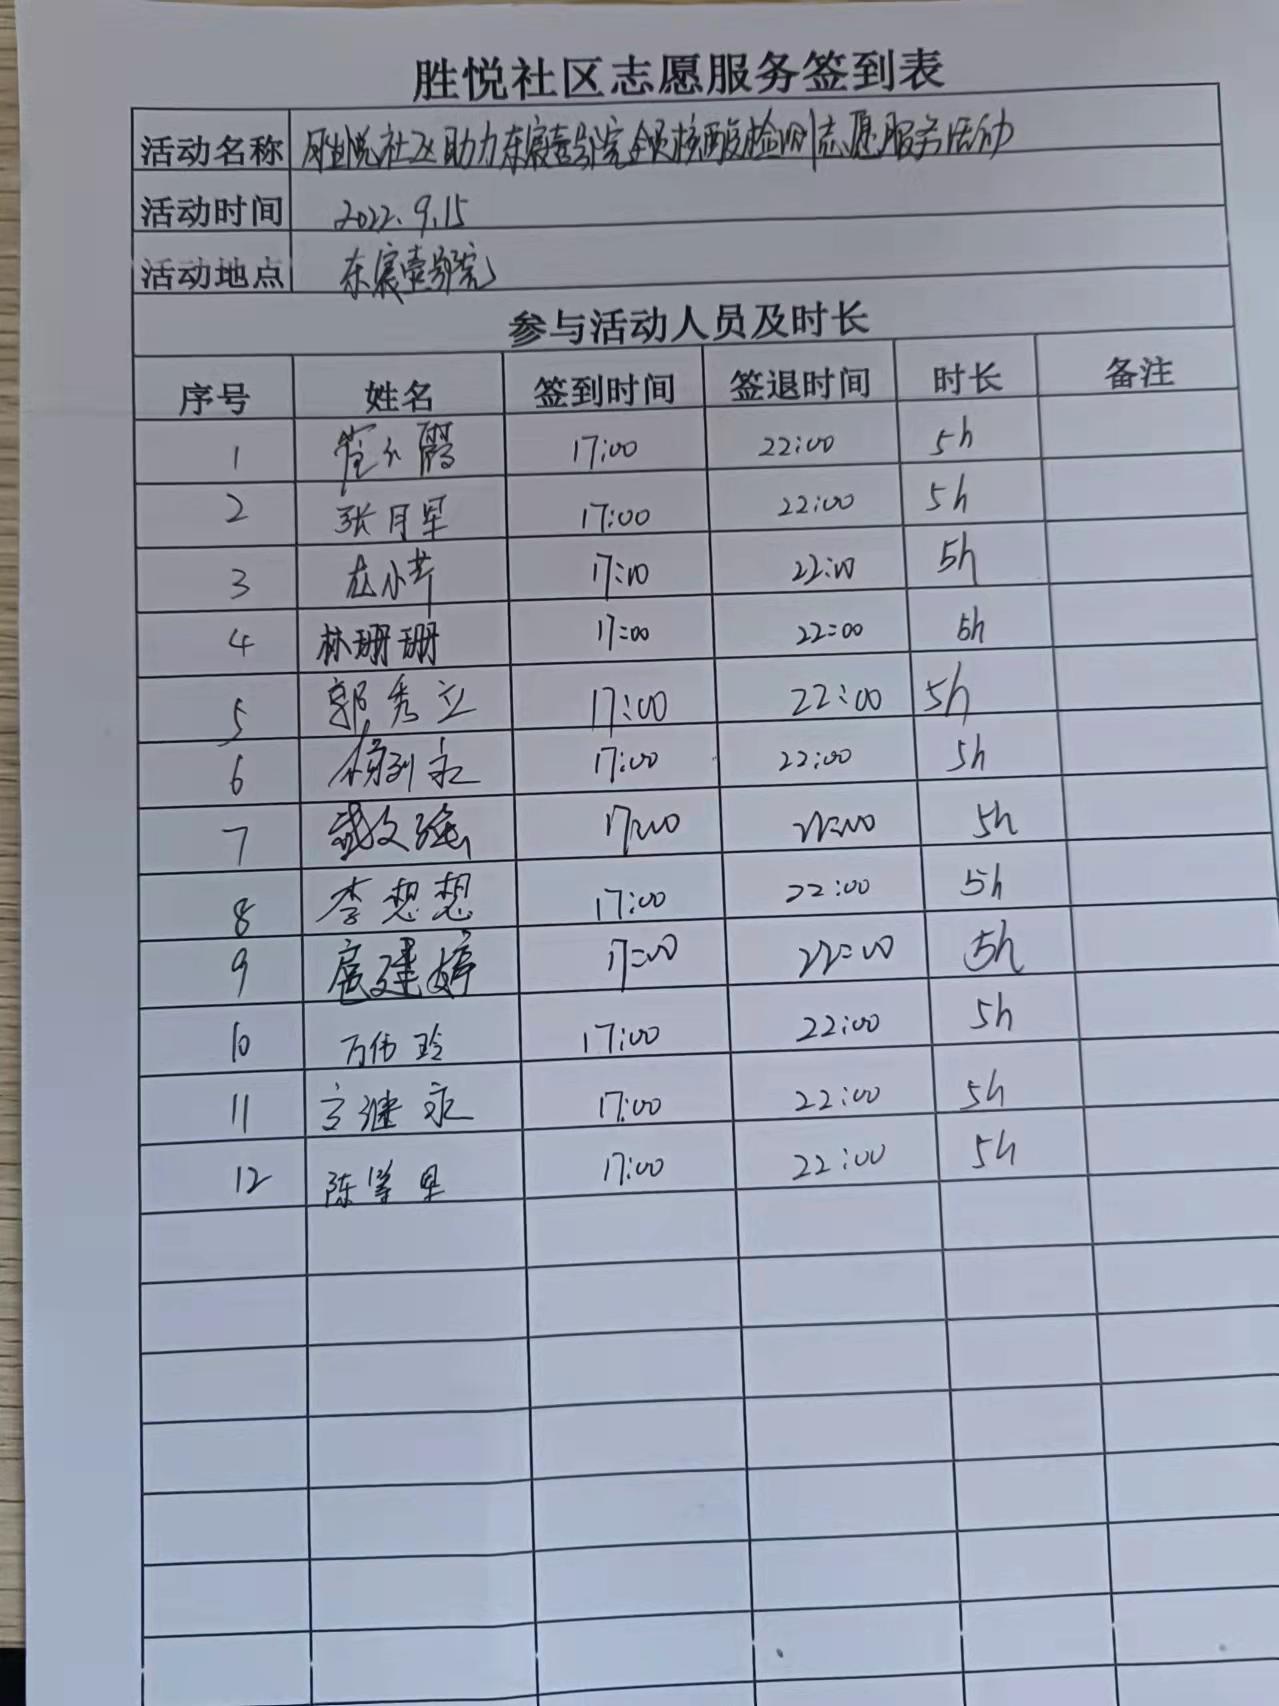 胜悦社区志愿服务签到表
活动名称 胜悦社区助力东宸壹号院全员核酸检测志愿服务活动
活动时间 2022.9.15
活动地点 东宸壹号院
参与活动人员及时长
序号 姓名 签到时间 签退时间 时长 备注
1 17:00 22:00 5h
2 张月军 17:00 22:00 5h
3 17:00 22:00 5h
4 林珊珊 17:00 22:00 5h
5 郭秀立 17:00 22:00 5h
6 17:00 22:00 5h
7 17:00 22:00 5h
8 李想想 17:00 22:00 5h
9 扈建婷 17:00 22:00 5h
10 万伟玲 17:00 22:00 5h
11 17:00 22:00 5h
12 陈 17:00 22:00 5h